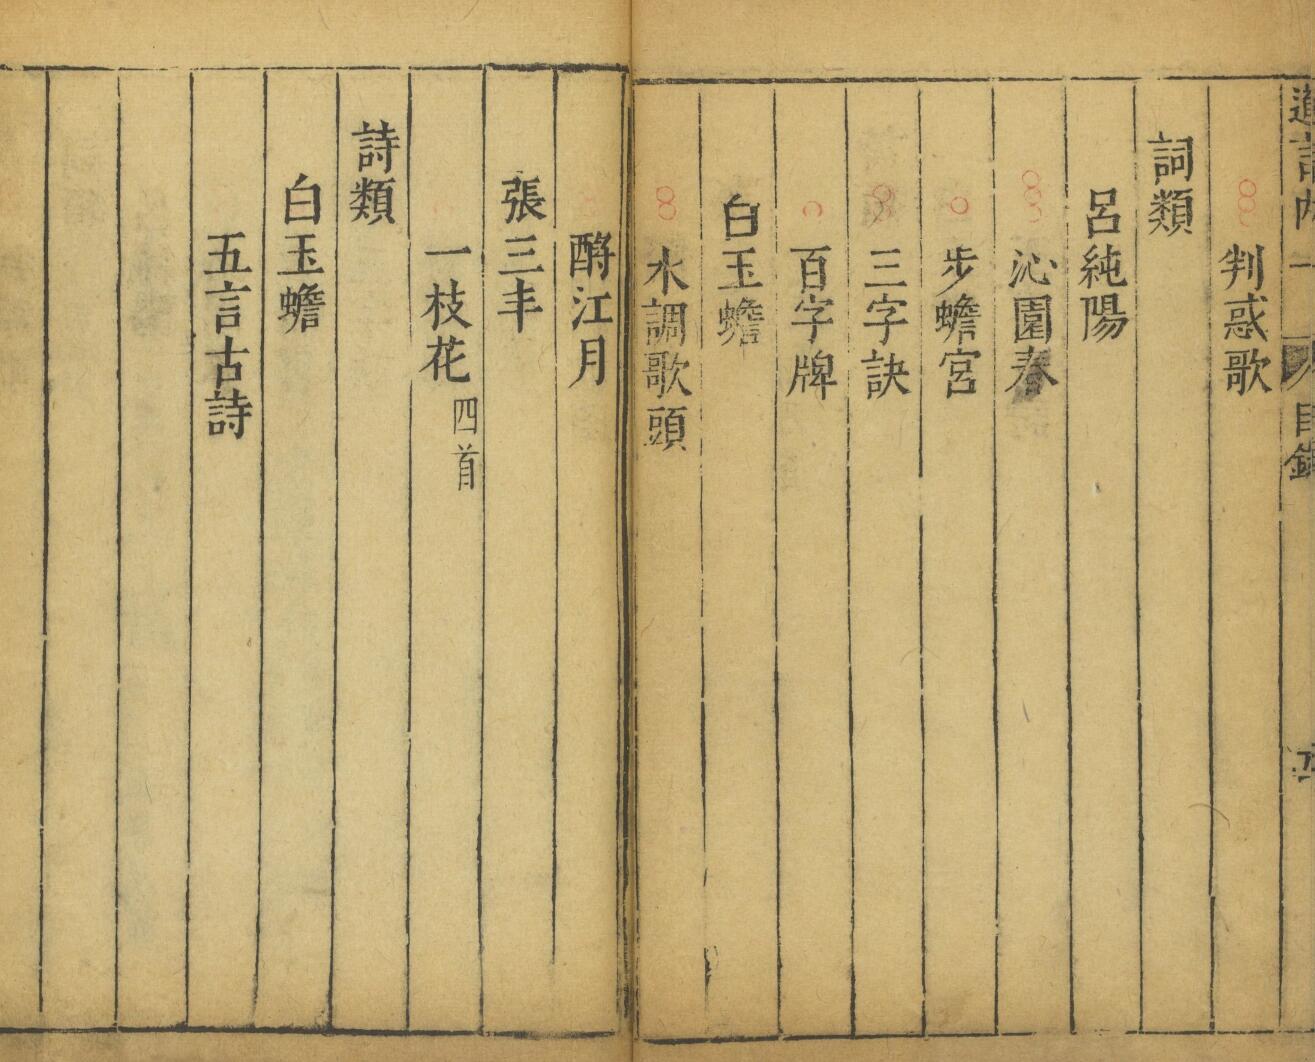 判惑歌
詞類
呂純陽
沁園春
步蟾宮
三字訣
百字牌
白玉蟾
水調歌頭
酹江月
張三丰
一枝花四首
詩類
白玉蟾
五言古詩